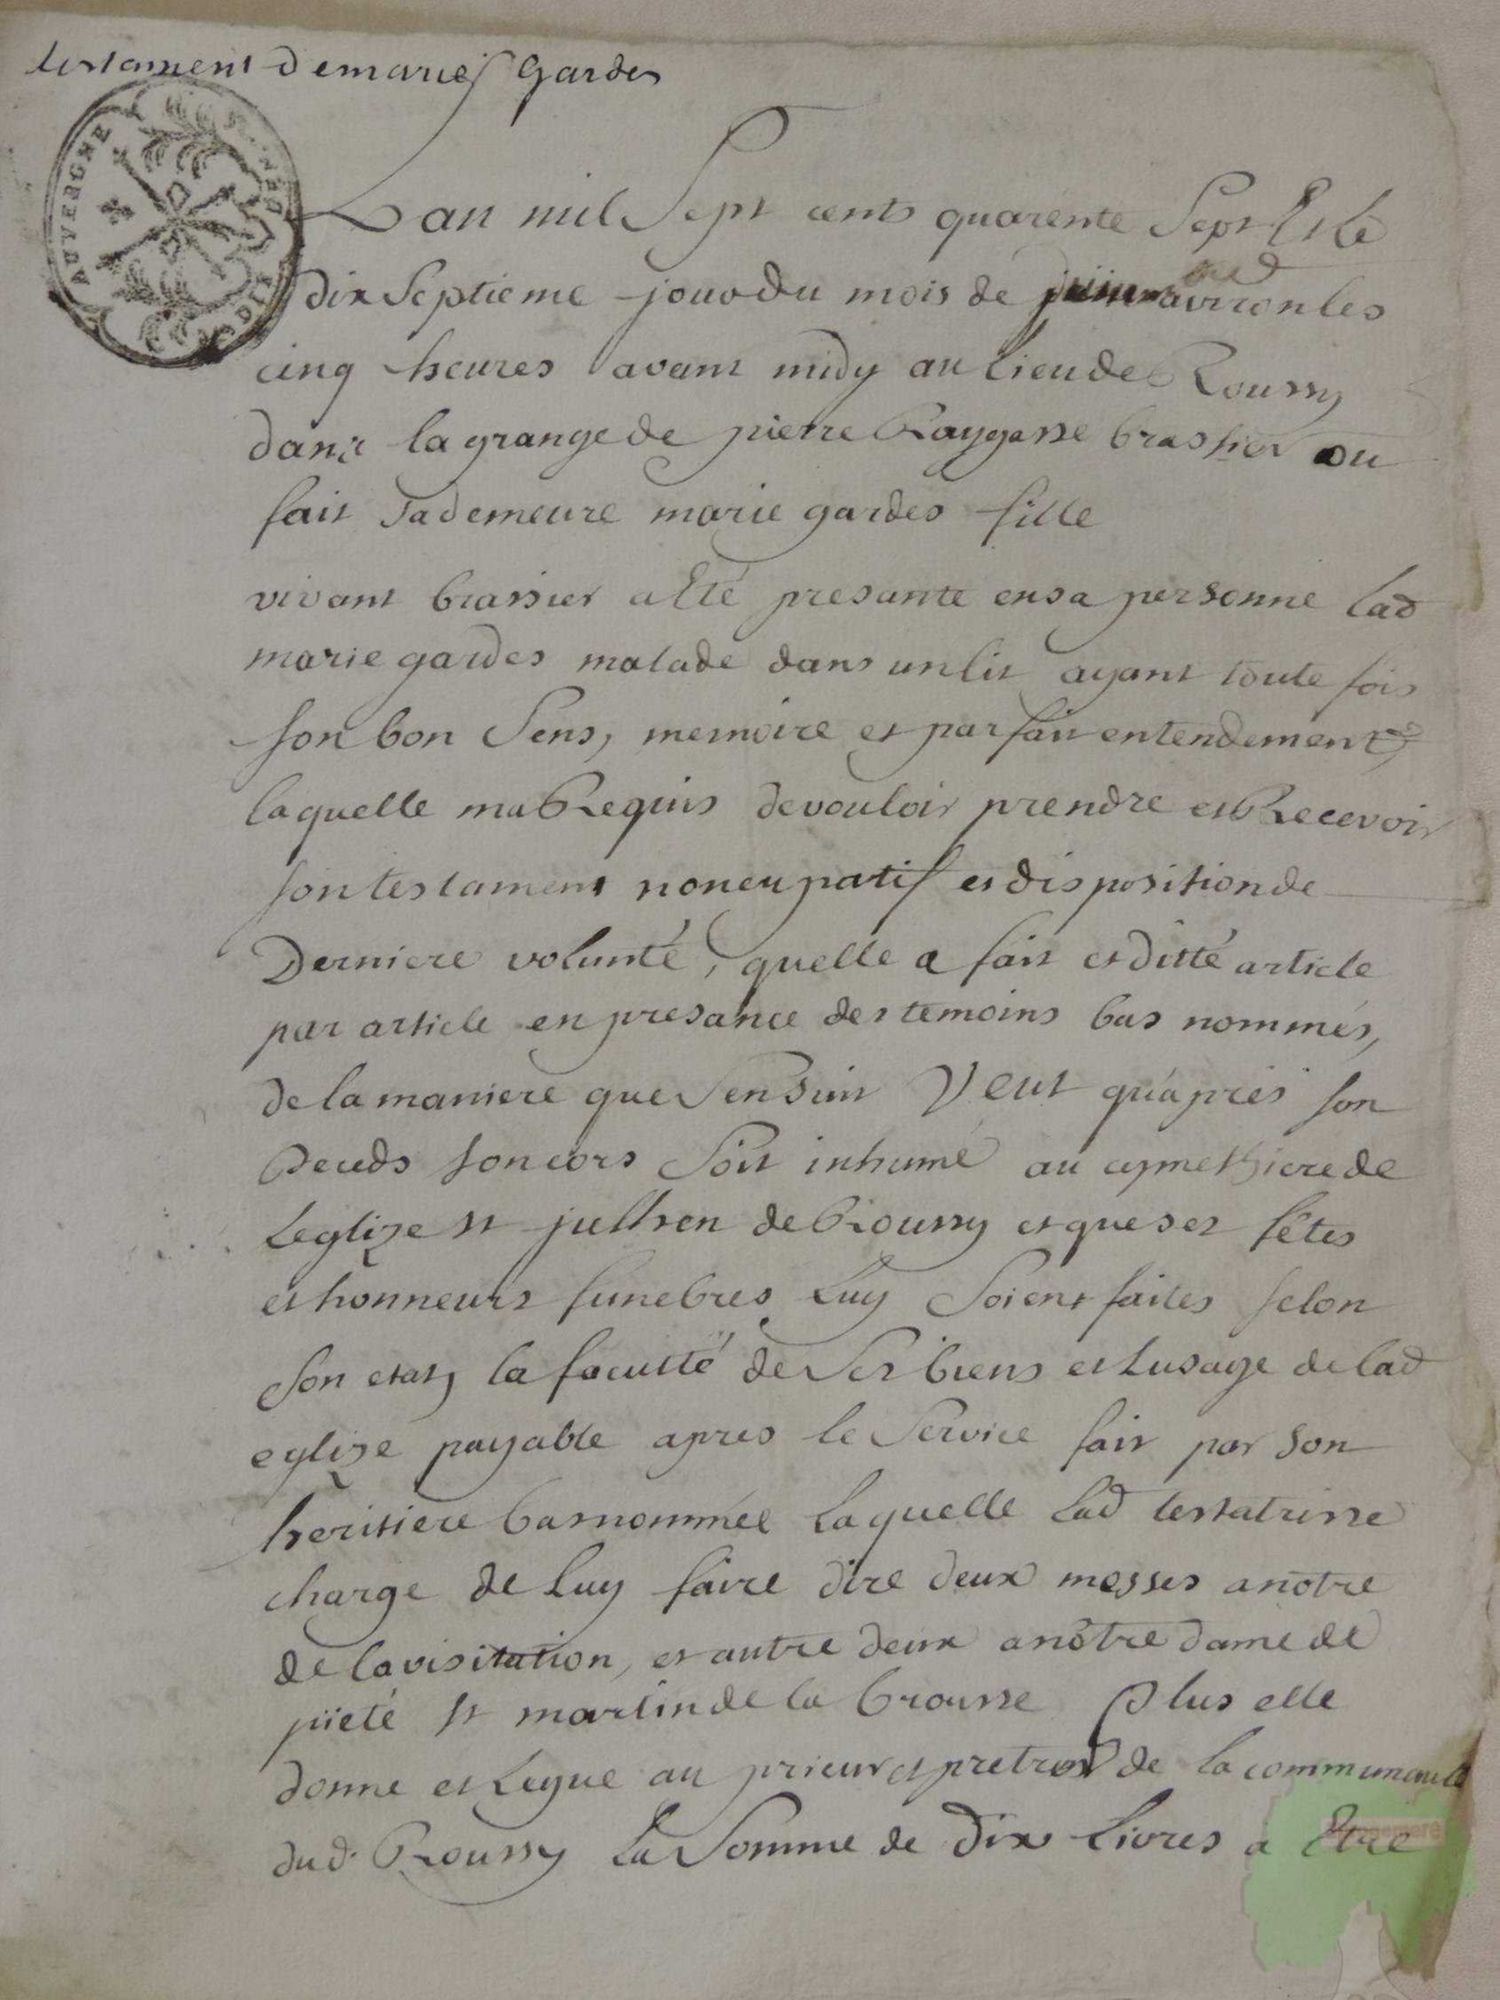 testament de marie Gardes
AUVERGNE
Lan mil Sept cents quarente Sept Et le
dix Septieme jour du mois de environ les
cinq heures avant midy au lieu de Roussy
dans la grange de pierre Raygasse brassier ou
fait sa demeure marie gardes fille
vivant brassier a Eté presante en sa personne lad
marie gardes malade dans un lit ayant toute fois
son bon Sens, memoire et parfait entendement
laquelle ma Requis de vouloir prendre et Recevoir
son testament noncupatif et disposition de
Derniere volunté, quelle a fait et ditté article
par article en presance des temoins bas nommés,
de la maniere que Sensuit Veut quapres son
Deceds son cors Soit inhumé au cymethiere de
Leglize st jullien de Roussy et que ses fêtes
et honneurs funebres Luy Soient faites selon
Son etat, la faculté de Ses biens et Lusage de lad
eglize payable apres le Service fait par son
heritiere bas nommée Laquelle Lad testatrisse
charge de Luy faire dire deux messes a notre
de la visitation, et autre deux a nôtre dame de
pieté st martin de la brousse Plus elle
donne et Legue au prieur et pretres de la communauté
dud. Roussy La Somme de Dix Livres a Etre